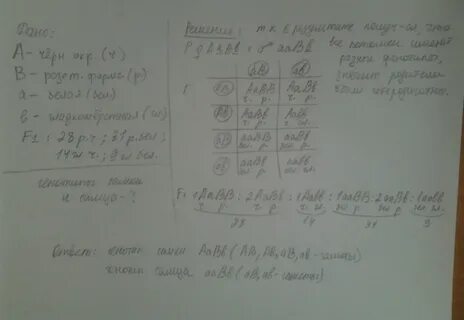 Дано:
А - чёрн. окр. (ч)
В - розет. форма (р)
а - белая (бел)
в - (ли)
F1 : 28 р.ч ; 31 р.бел ;
14 ч ; 9 бел.
генотипы самки
и самца - ?
Решение: т.к в результате что
все потомки имеют
разные фенотипы,
значит родители
были
P ♀ АаВв × ♂ ааВв
аВ ав
АВ АаВВ ч. р. АаВв ч. р.
Ав АаВв ч. р. Аавв ч. гл.
аВ ааВВ р. ааВв р.
ав ааВв р. аавв
F1 1АаВВ : 2АаВв : 1Аавв : 1ааВВ : 2ааВв : 1аавв
28 14 31 9
Ответ: генотип самки АаВв (АВ, Ав, аВ, ав - гаметы)
генотип самца ааВв (аВ, ав - гаметы)